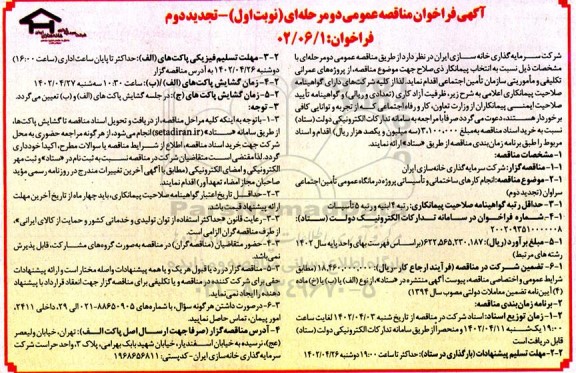 آگهی فراخوان مناقصه عمومی دو مرحله‌ای (نوبت اول) - تجدید دوم
فراخوان: ۰۲/۰۶/۱
شرکت سرمایه گذاری خانه سازی ایران در نظر دارد از طریق مناقصه عمومی دو مرحله‌ای با
مشخصات ذیل نسبت به انتخاب پیمانکار ذی صلاح جهت موضوع مناقصه، از پروژه‌های عمرانی
تکلیفی و مأموریتی سازمان تأمین اجتماعی اقدام نماید. لذا از کلیه شرکت‌های دارای گواهینامه
صلاحیت پیمانکاری اعلامی به شرح زیر، ظرفیت آزاد کاری (تعدادی و ریالی) و گواهینامه تأیید
صلاحیت ایمنی پیمانکاران از وزارت تعاون، کار و رفاه اجتماعی که از تجربه و توانایی کافی
برخوردار هستند، دعوت می گردد صرفاً با مراجعه به سامانه تدارکات الکترونیکی دولت (ستاد)
نسبت به خرید اسناد مناقصه به مبلغ ۳,۱۰۰,۰۰۰ (سه میلیون و یکصد هزار ریال) اقدام و اسناد
مربوط را طبق برنامه زمان‌بندی مناقصه از طریق «ستاد» ارائه نمایند.
۱- مشخصات مناقصه:
۱-۱- مناقصه گزار: شرکت سرمایه گذاری خانه سازی ایران
۲-۱- موضوع مناقصه: انجام کارهای ساختمانی و تأسیساتی پروژه درمانگاه عمومی تأمین اجتماعی
سراوان (تجدید دوم)
۳-۱- حداقل رتبه گواهینامه صلاحیت پیمانکاری: رتبه ۴ ابنیه و رتبه ۵ تأسیسات
۴-۱- شماره فراخوان در سامانه تدارکات الکترونیک دولت (ستاد):
۵-۱- مبلغ برآورد (ریال): ۶۲۲,۵۶۵,۲۳۰,۱۸۷ (براساس فهرست بهای واحد پایه سال ۱۴۰۲
رشته های مرتبط)
۶-۱- تضمین شرکت در مناقصه (فرآیند ارجاع کار - ریال): ۱۸,۴۶۰,۰۰۰,۰۰۰ (مطابق
شرایط عمومی و اختصاصی مناقصه، پیوست آگهی منتشره در «ستاد»)، از نوع (الف) یا (ب) یا (خ) ماده
(۴) آیین‌نامه تضمین معاملات دولتی مصوب سال ۱۳۹۴)
۲- برنامه زمان‌بندی مناقصه:
۱-۲- زمان توزیع اسناد: اسناد شرکت در مناقصه از تاریخ شنبه ۱۴۰۲/۰۴/۰۳ لغایت ساعت
۱۹:۰۰ یکشنبه ۱۴۰۲/۰۴/۱۱ و منحصراً از طریق سامانه تدارکات الکترونیکی دولت (ستاد)
قابل دریافت است
۲-۲- مهلت تسلیم پیشنهادات (بارگذاری در ستاد): حداکثر تا ساعت ۱۹:۰۰ دوشنبه ۱۴۰۲/۰۴/۲۶
۳-۲- مهلت تسلیم فیزیکی پاکت‌های (الف): حداکثر تا پایان ساعت اداری (ساعت ۱۶:۰۰)
دوشنبه ۱۴۰۲/۰۴/۲۶ به آدرس مناقصه گزار
۴-۲- زمان گشایش پاکت های (الف)/(ب): ساعت ۱۰:۳۰ سه‌شنبه ۱۴۰۲/۰۴/۲۷
۵-۲- زمان گشایش پاکت های (ج): در جلسه گشایش پاکت های (الف) و (ب) تعیین می گردد.
۳- توجه:
۱-۳- با توجه به اینکه کلیه مراحل مناقصه، از دریافت و تحویل اسناد مناقصه تا گشایش پاکت‌ها،
از طریق سامانه «ستاد» (setadiran.ir) انجام می‌شود، از هرگونه مراجعه حضوری به محل
شرکت جهت خرید اسناد مناقصه، اطلاع از شرایط مناقصه یا سوالات مطرح، اکیدا خودداری
گردد. لذا مقتضی است متقاضیان شرکت در مناقصه نسبت به ثبت‌نام در «ستاد» و ثبت مهر
الکترونیکی و امضای الکترونیکی (مطابق با آگهی آخرین تغییرات مندرج در روزنامه رسمی مؤید
صاحبان مجاز امضاء تعهدآور) اقدام نمایند.
۲-۳- حداقل تاریخ اعتبار گواهینامه صلاحیت پیمانکاری، باید چهار ماه از تاریخ آخرین مهلت
ارائه پیشنهاد قیمت باشد.
۳-۳- رعایت قانون «حداکثر استفاده از توان تولیدی و خدماتی کشور و حمایت از کالای ایرانی»،
از طرف مناقصه گران الزامی است.
۴-۳- حضور متقاضیان (مناقصه گران) در مناقصه به صورت گروه‌های مشارکت، قابل پذیرش
نمی باشد.
۵-۳- مناقصه گزار در رد یا قبول هر یک و یا همه پیشنهادات واصله مختار است و ارائه پیشنهادات
حقی برای شرکت کننده در مناقصه و یا تکلیفی برای مناقصه گزار جهت انعقاد قرارداد با پیشنهاد
دهنده را ایجاد نمی نماید.
۶-۳- درصورت داشتن هرگونه سؤال، با شماره‌های ۸۸۶۵۰۹۰۵-۰۲۱ الی ۲۹، داخلی ۳۴۱۱،
امور پیمان، تماس حاصل نمایید.
۴- آدرس مناقصه گزار (صرفا جهت ارسال اصل پاکت الف): تهران، خیابان ولیعصر
(عج)، نرسیده به خیابان اسفندیار، خیابان شهید بابک بهرامی، پلاک ۳، واحد حراست شرکت
سرمایه گذاری خانه سازی ایران - کدپستی: ۱۹۶۸۶۵۶۸۱۱